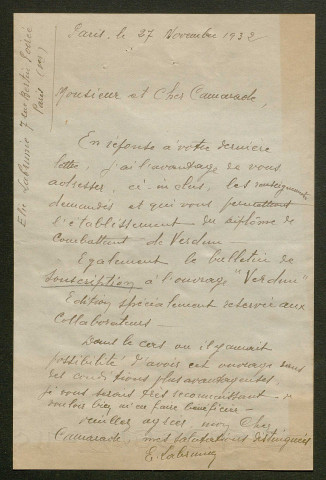 Elie Labrunie 7 rue
Paris
Paris, le 27 Novembre 1932
Monsieur et Cher Camarade,
En réponse à votre dernière
lettre, j'ai l'avantage de vous
adresser, ci-inclus, les renseignements
demandés et qui vous permettront
l'établissement du diplôme de
Combattant de Verdun —
Egalement le bulletin de
souscription à l'ouvrage "Verdun"
Edition spécialement réservée aux
Collaborateurs —
Dans le cas où il y aurait
possibilité d'avoir cet ouvrage dans
des conditions plus avantageuses
je vous serais très reconnaissant de
vouloir bien m'en faire bénéficier —
Veuillez agréer, mon Cher
Camarade, mes salutations distinguées
E. Labrunie